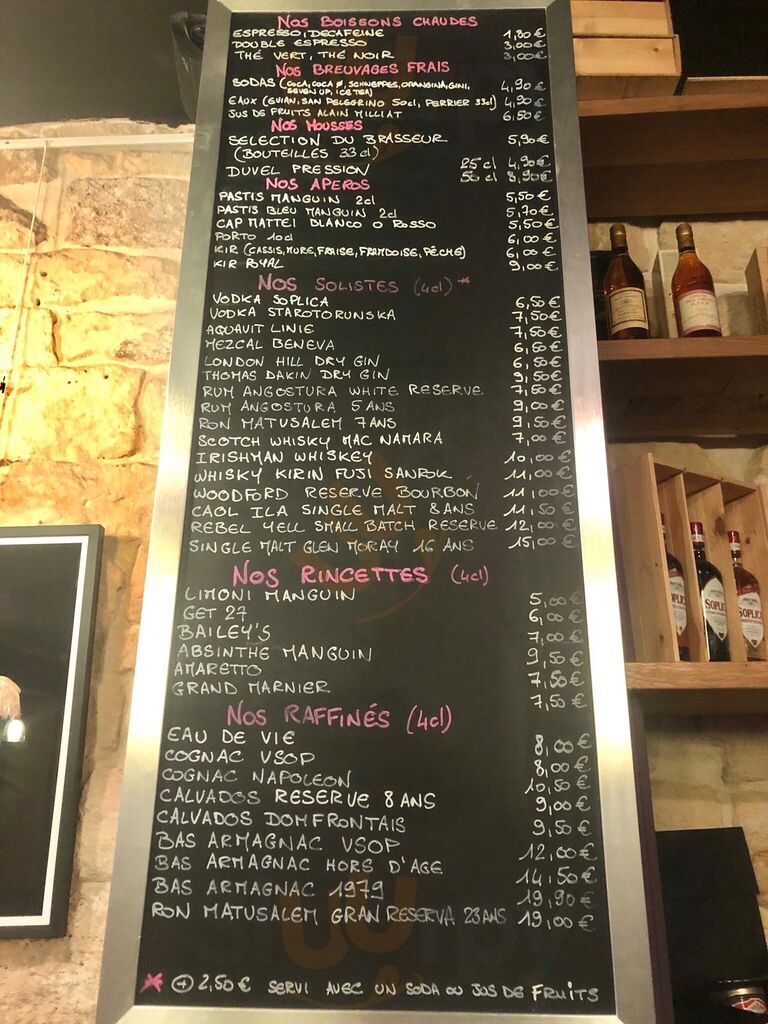 NOS BOISSONS CHAUDES
ESPRESSO, DECAFEINE 1,80€
DOUBLE ESPRESSO 3,00€
THÉ VERT, THÉ NOIR 3,00€
NOS BREUVAGES FRAIS
SODAS (COCA, COCA Ø, SCHWEPPES, ORANGINA, GINI, 4,90€
SEVEN UP, ICE TEA)
EAUX (EVIAN, SAN PELEGRINO 50cl, PERRIER 33cl) 4,90€
JUS DE FRUITS ALAIN MILLIAT 6,50€
NOS MOUSSES
SELECTION DU BRASSEUR 5,90€
(BOUTEILLES 33 cl)
DUVEL PRESSION 25 cl 4,90€
50 cl 8,90€
NOS APEROS
PASTIS MANGUIN 2cl 5,50€
PASTIS BLEU MANGUIN 2cl 5,70€
CAP MATTEI BLANCO O ROSSO 5,50€
PORTO 10cl 6,00€
KIR (CASSIS, MURE, FRAISE, FRAMBOISE, PÊCHE) 6,00€
KIR ROYAL 9,00€
NOS SOLISTES (4cl) *
VODKA SOPLICA 6,50€
VODKA STAROTORUNSKA 7,50€
AQUAVIT LINIE 7,50€
MEZCAL BENEVA 6,50€
LONDON HILL DRY GIN 6,50€
THOMAS DAKIN DRY GIN 9,50€
RUM ANGOSTURA WHITE RESERVE 7,50€
RUM ANGOSTURA 5 ANS 9,00€
RON MATUSALEM 7 ANS 9,50€
SCOTCH WHISKY MAC NAMARA 7,00€
IRISHMAN WHISKEY 10,00€
WHISKY KIRIN FUJI SANROK 11,00€
WOODFORD RESERVE BOURBON 11,00€
CAOL ILA SINGLE MALT 8 ANS 11,50€
REBEL YELL SMALL BATCH RESERVE 12,00€
SINGLE MALT GLEN MORAY 16 ANS 15,00€
NOS RINCETTES (4cl)
LIMONI MANGUIN 5,00€
GET 27 6,00€
BAILEY'S 7,00€
ABSINTHE MANGUIN 9,50€
AMARETTO 7,50€
GRAND MARNIER 7,50€
NOS RAFFINÉS (4cl)
EAU DE VIE 8,00€
COGNAC VSOP 8,00€
COGNAC NAPOLEON 10,50€
CALVADOS RESERVE 8 ANS 9,00€
CALVADOS DOMFRONTAIS 9,50€
BAS ARMAGNAC VSOP 12,00€
BAS ARMAGNAC HORS D'AGE 14,50€
BAS ARMAGNAC 1979 19,90€
RON MATUSALEM GRAN RESERVA 23 ANS 19,00€
* + 2,50€ SERVI AVEC UN SODA OU JUS DE FRUITS
SOPLICA